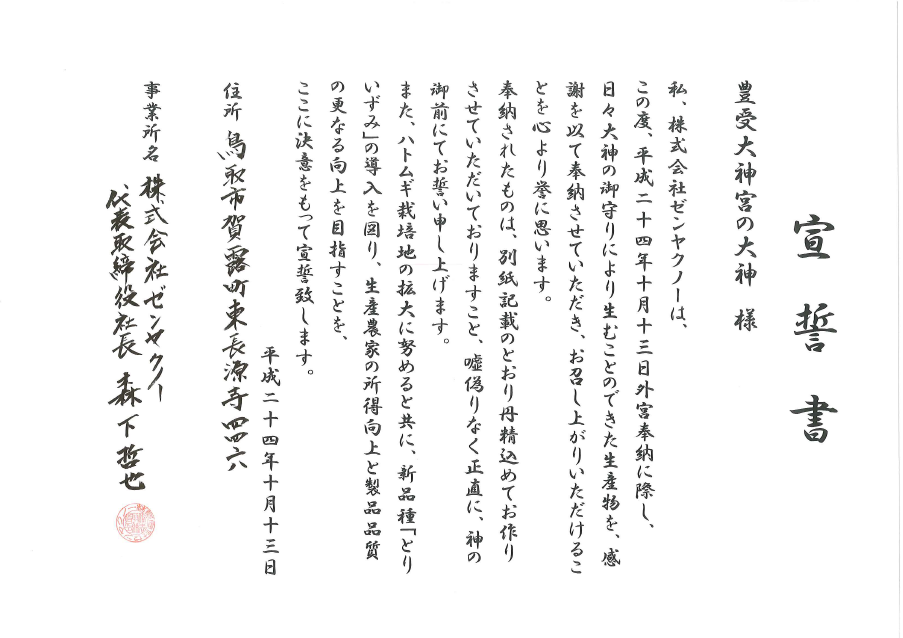 宣誓書
豊受大神宮の大神 様
私、株式会社ゼンヤクノーは、
この度、平成二十四年十月十三日外宮奉納に際し、
日々大神の御守りにより生むことのできた生産物を、感
謝を以て奉納させていただき、お召し上がりいただけるこ
とを心より誉に思います。
奉納されたものは、別紙記載のとおり丹精込めてお作り
させていただいておりますこと、嘘偽りなく正直に、神の
御前にてお誓い申し上げます。
また、ハトムギ栽培地の拡大に努めると共に、新品種「とり
いずみ」の導入を図り、生産農家の所得向上と製品品質
の更なる向上を目指すことを、
ここに決意をもって宣誓致します。
平成二十四年十月十三日
住所 鳥取市賀露町東長源寺四四六
事業所名 株式会社ゼンヤクノー
代表取締役社長 森下哲也